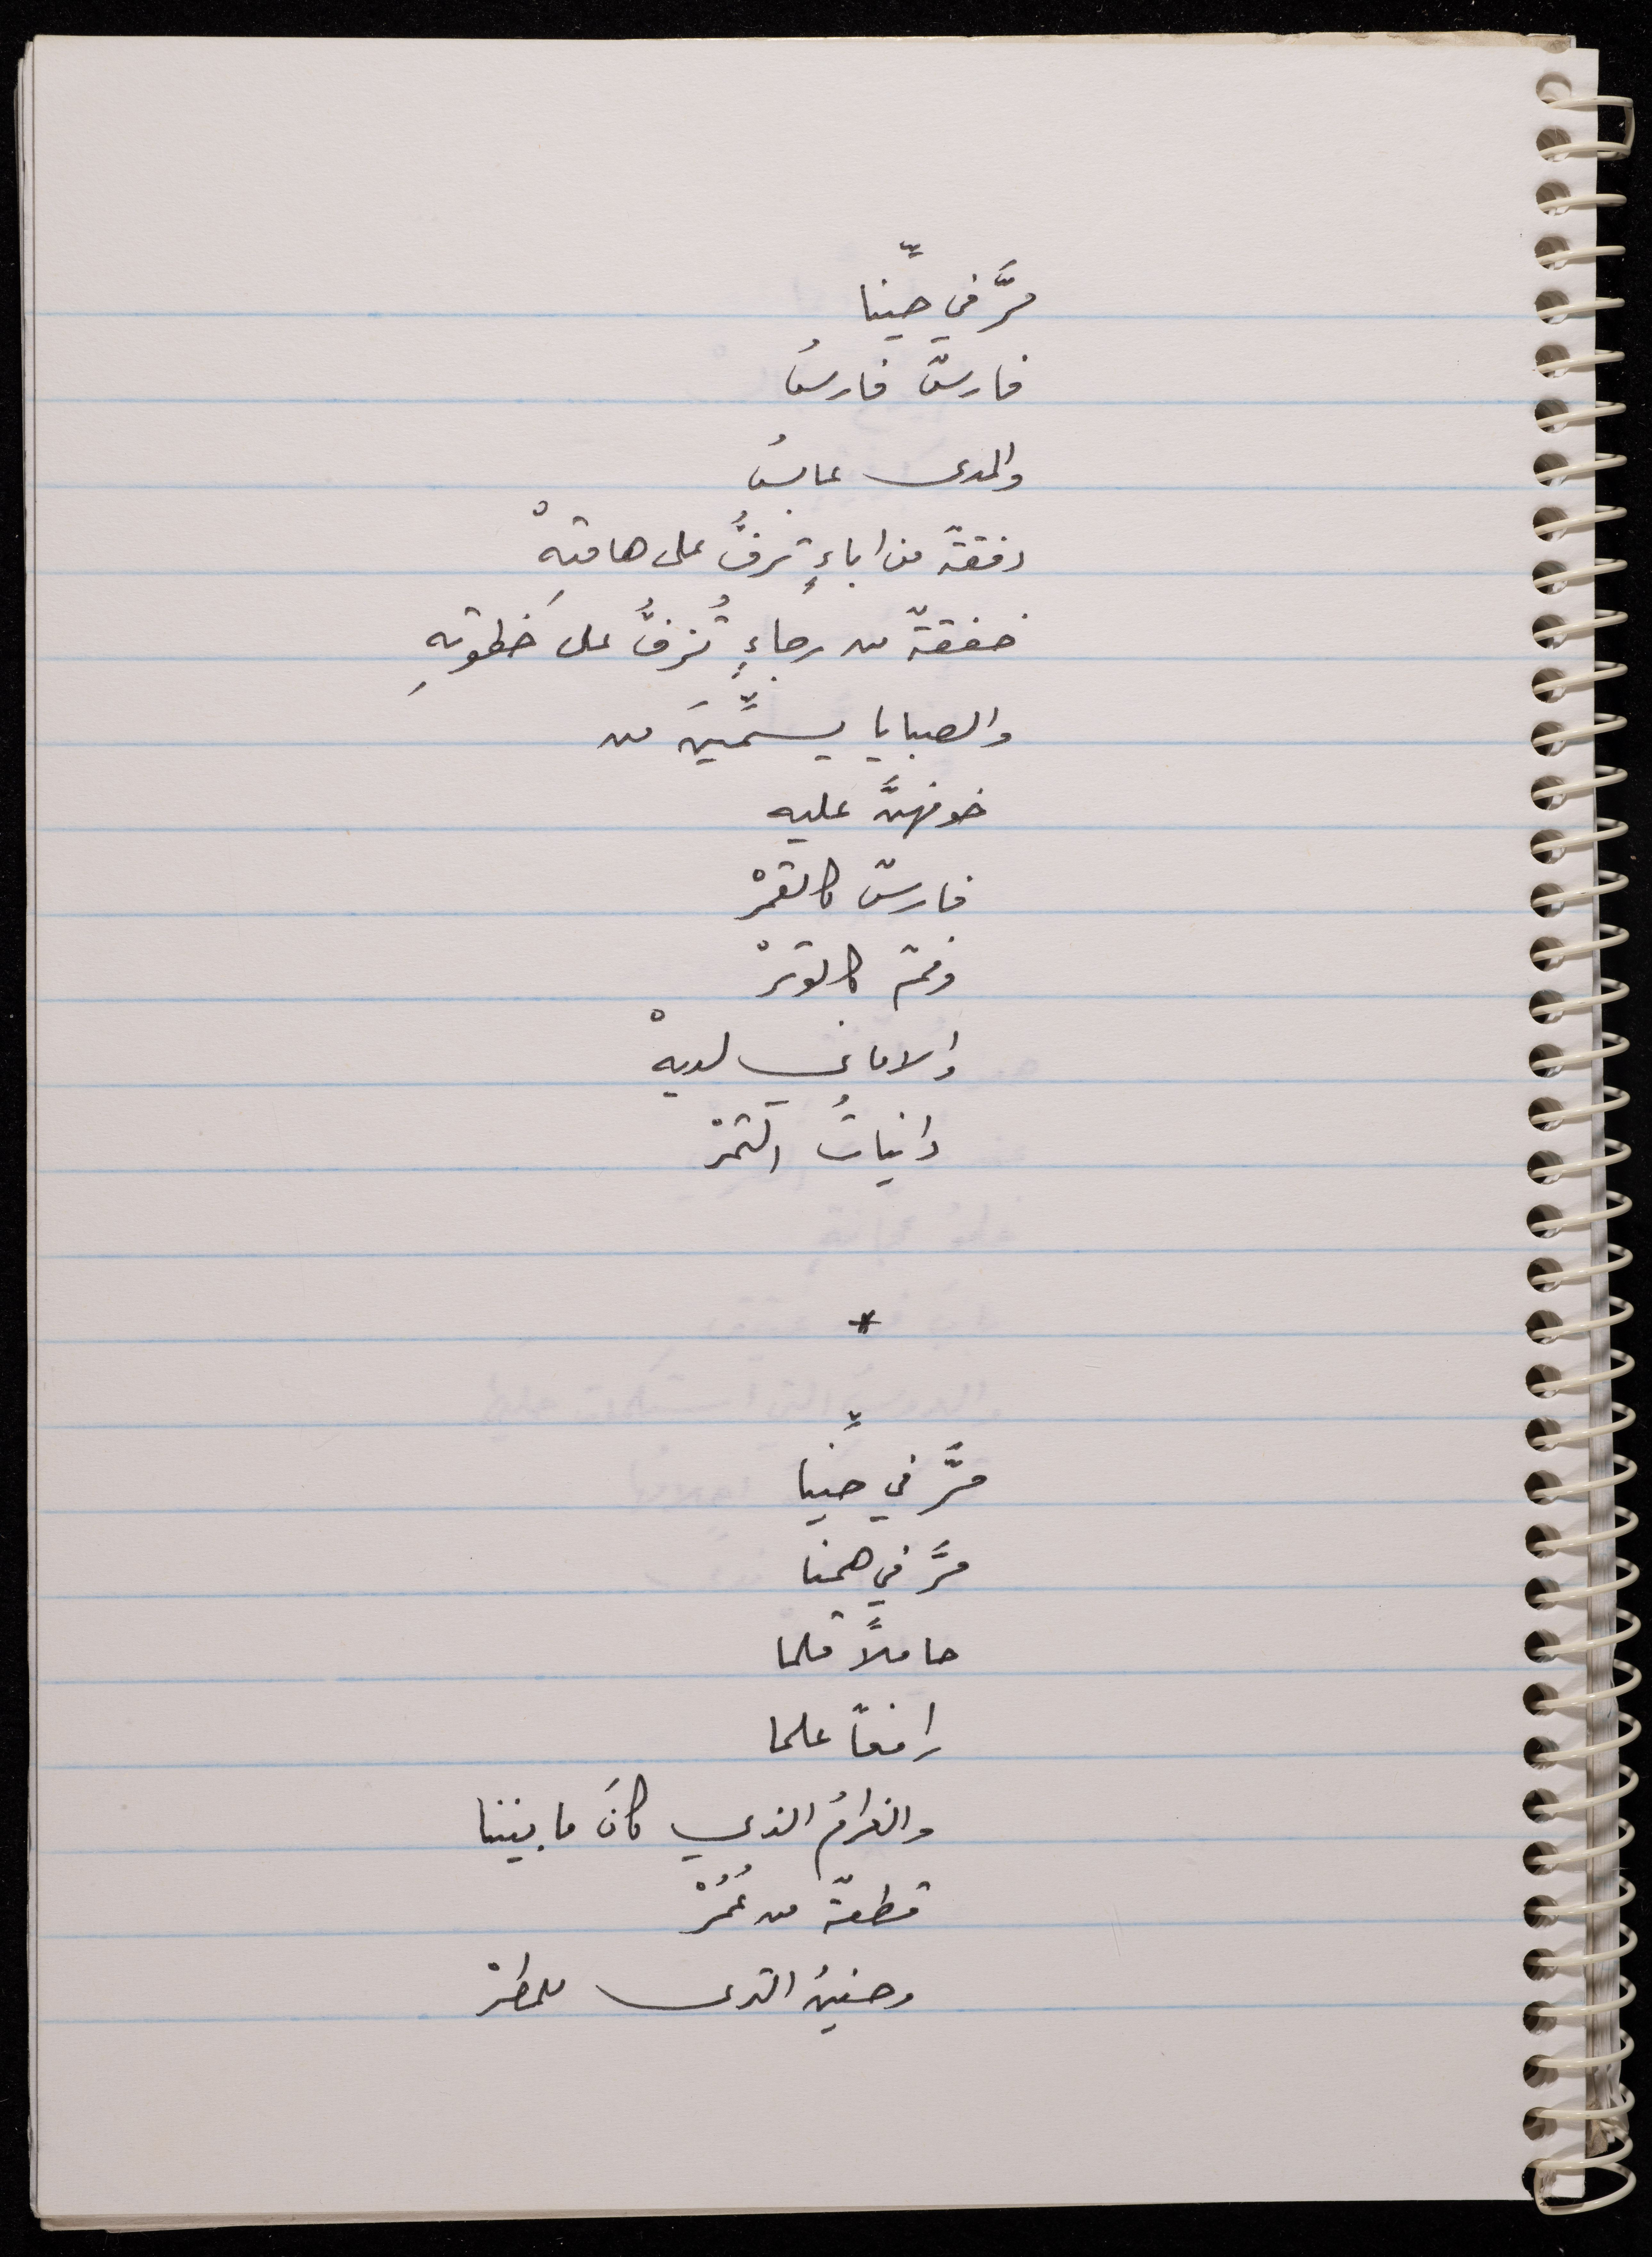 مرَّ في حيِّنا
فارسٌ فارسُ
والمدى عابسُ
دفقةٌ من اباءٍ ترفُّ على هامتِهْ
خفقةٌ من رجاءٍ تُزفُّ على خَطوتِهِ
والصبايا يسمِّينَ من
خوفهنَّ عليه
فارسٌ كالقمرْ
وفمٌ كالوترْ
والاماني لديهْ
دانياتُ الثمرْ
*
مرَّ في حيِّنا
مرَّ في همنا
حاملاً قلما
رافعاً علما
والغرامُ الذي كانَ ما بيننا
قطعةٌ من عُمُرْ
وحنينُ الثرى للمطرْ